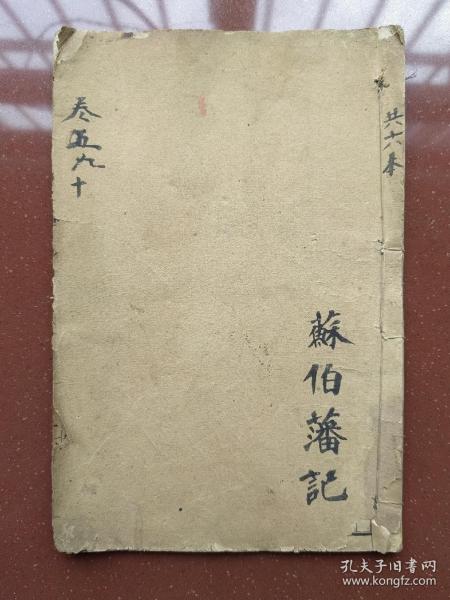 共六本
卷五九十
蘇伯藩記
孔夫子旧书网
www.kongfz.com